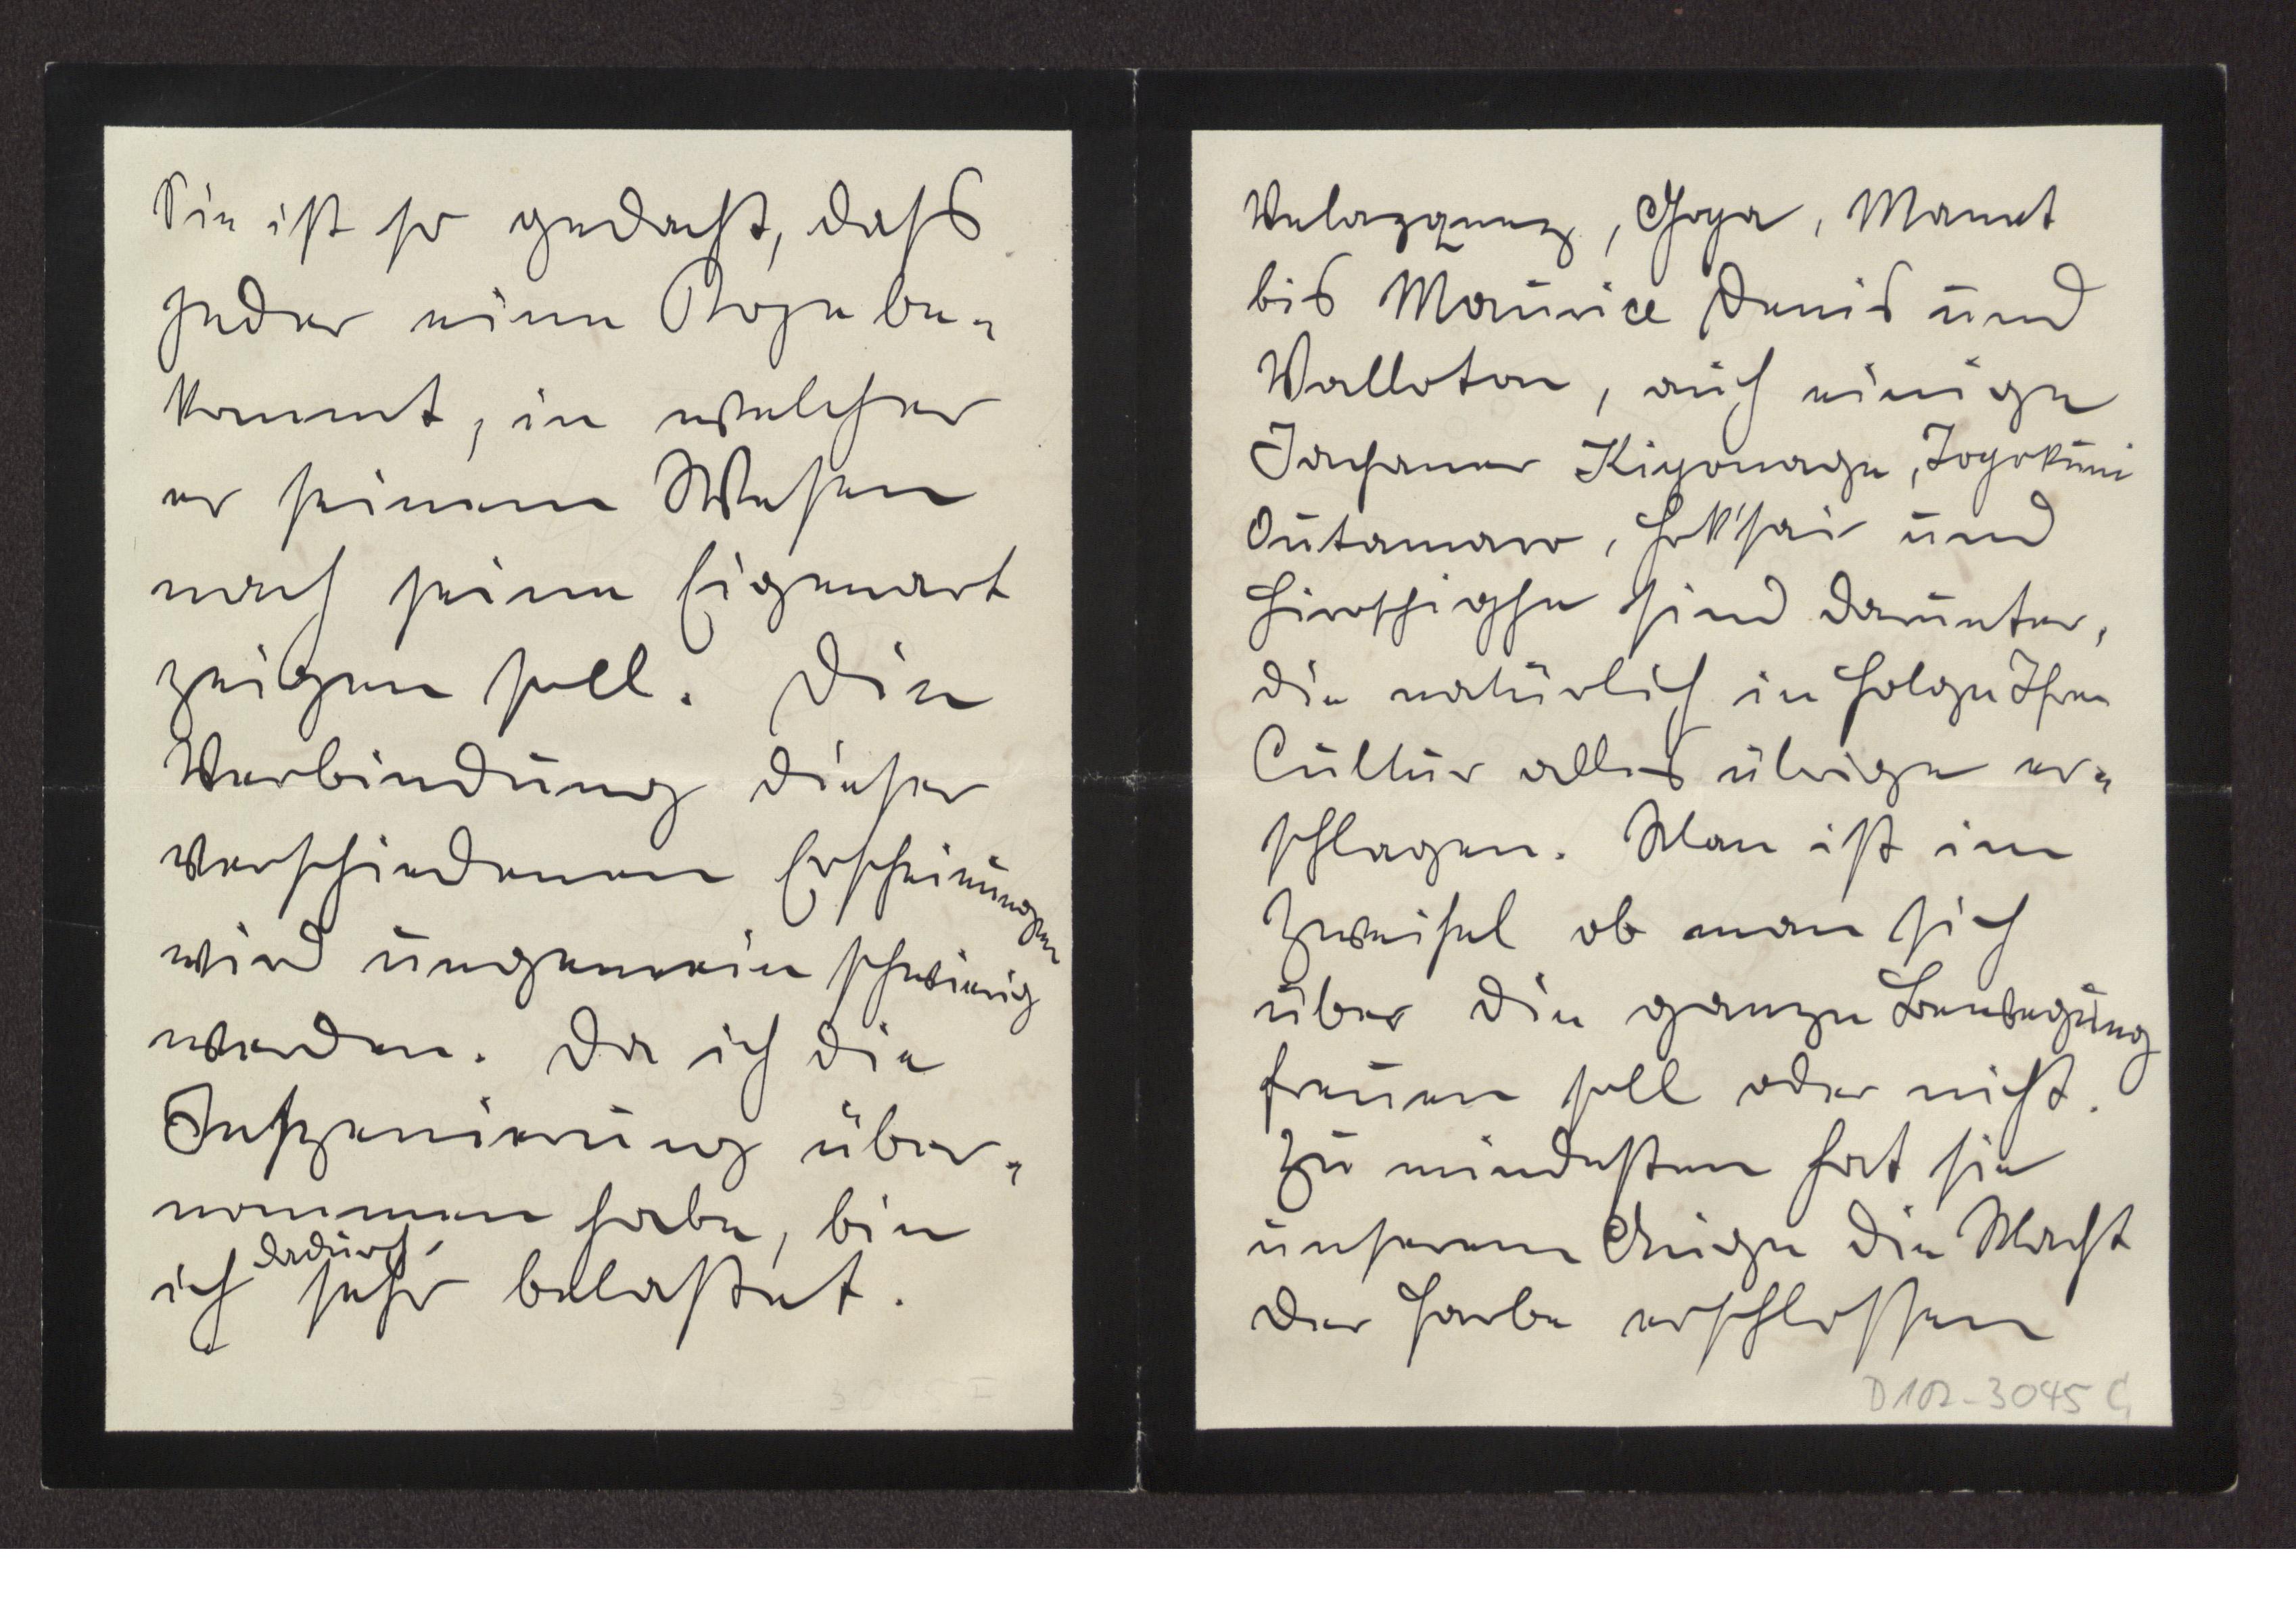 Sie ist so gedacht, dass
jeder eine Koje be-
kommt, in welcher
er seinem Wesen
nach seine Eigenart
zeigen soll. Die
Verbindung dieser
verschiedenen Erscheinungen
wird ungemein schwierig
werden. Da ich die
Inszenierung über-
nommen habe, bin
dadurch
ich sehr belastet.
Velazquez, Goya, Manet
bis Maurice Denis und
Valloton, auch einige
Japaner Kiyonaga, Toyokuni
Outamaro, Hok'sai und
Hiroshighe sind darunter,
die natürlich in Folge Ihrer
Cultur alles übrige er-
schlagen. Man ist im
Zweifel ob man sich
über die ganze Bewegung
freuen soll oder nicht.
Zu mindesten hat sie
unserem Auge die Macht
der Farbe erschlossen
D102-3045 G